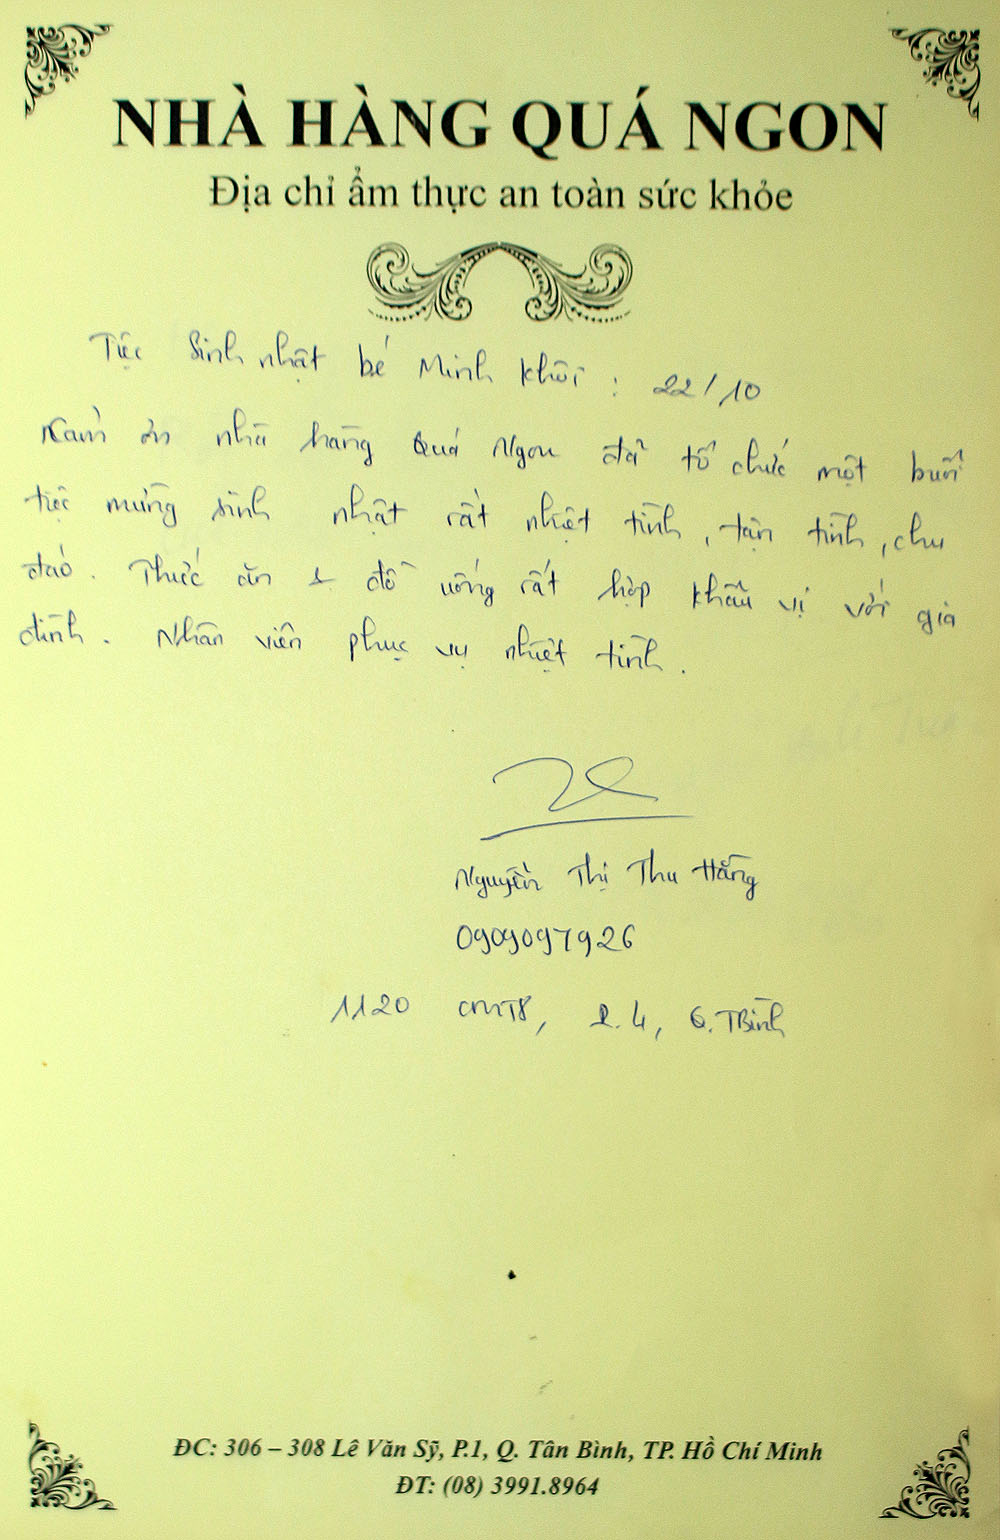 NHÀ HÀNG QUÁ NGON
Địa chỉ ẩm thực an toàn sức khỏe
Tiệc Sinh nhật bé Minh Khôi : 22/10
Cảm ơn nhà hàng Quá Ngon đã tổ chức một buổi
tiệc mừng sinh nhật rất nhiệt tình, tận tình, chu
đáo. Thức ăn & đồ uống rất hợp khẩu vị với gia
đình. Nhân viên phục vụ nhiệt tình.
Nguyễn Thị Thu Hằng
0909097926
1120 CMT8, P.4, Q.TBình
ĐC: 306 – 308 Lê Văn Sỹ, P.1, Q. Tân Bình, TP. Hồ Chí Minh
ĐT: (08) 3991.8964